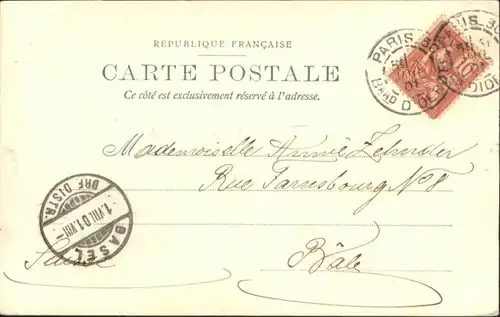 RÉPUBLIQUE FRANÇAISE
CARTE POSTALE
Ce côté est exclusivement réservé à l'adresse.
PARIS
Bard D
Mademoiselle Annie Zehnder
Rue Farnsbourg No 8
Bâle
Suisse
BASEL
BRF. DISTR.
1.VIII.01.VII-